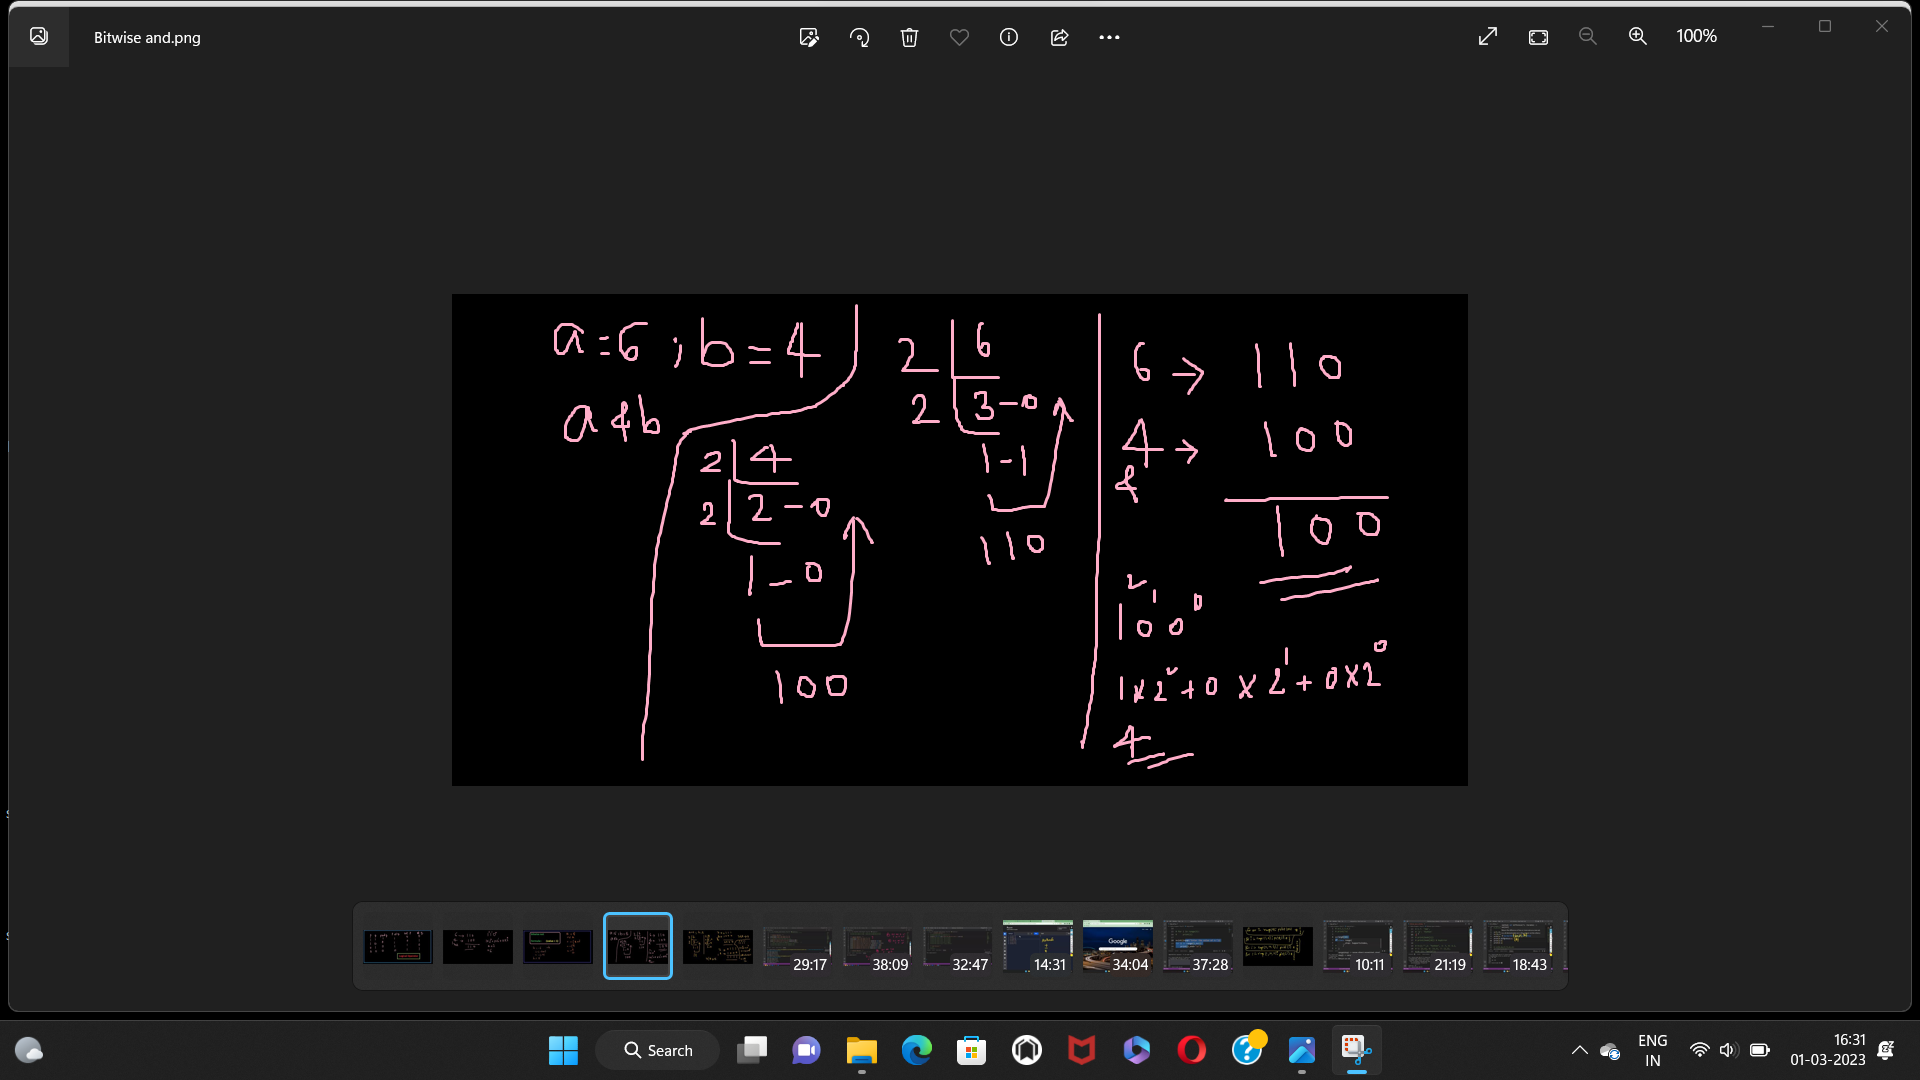 Bitwise and.png
100%
a=6 ; b=4
a&b
2 | 4
2 | 2 - 0
1 - 0
100
2 | 6
2 | 3 - 0
1 - 1
110
6 → 110
4 → 100
&
100
2 1 0
100
1×2² + 0×2¹ + 0×2⁰
4
29:17
38:09
32:47
14:31
Google
34:04
37:28
10:11
21:19
18:43
Search
ENG
IN
16:31
01-03-2023